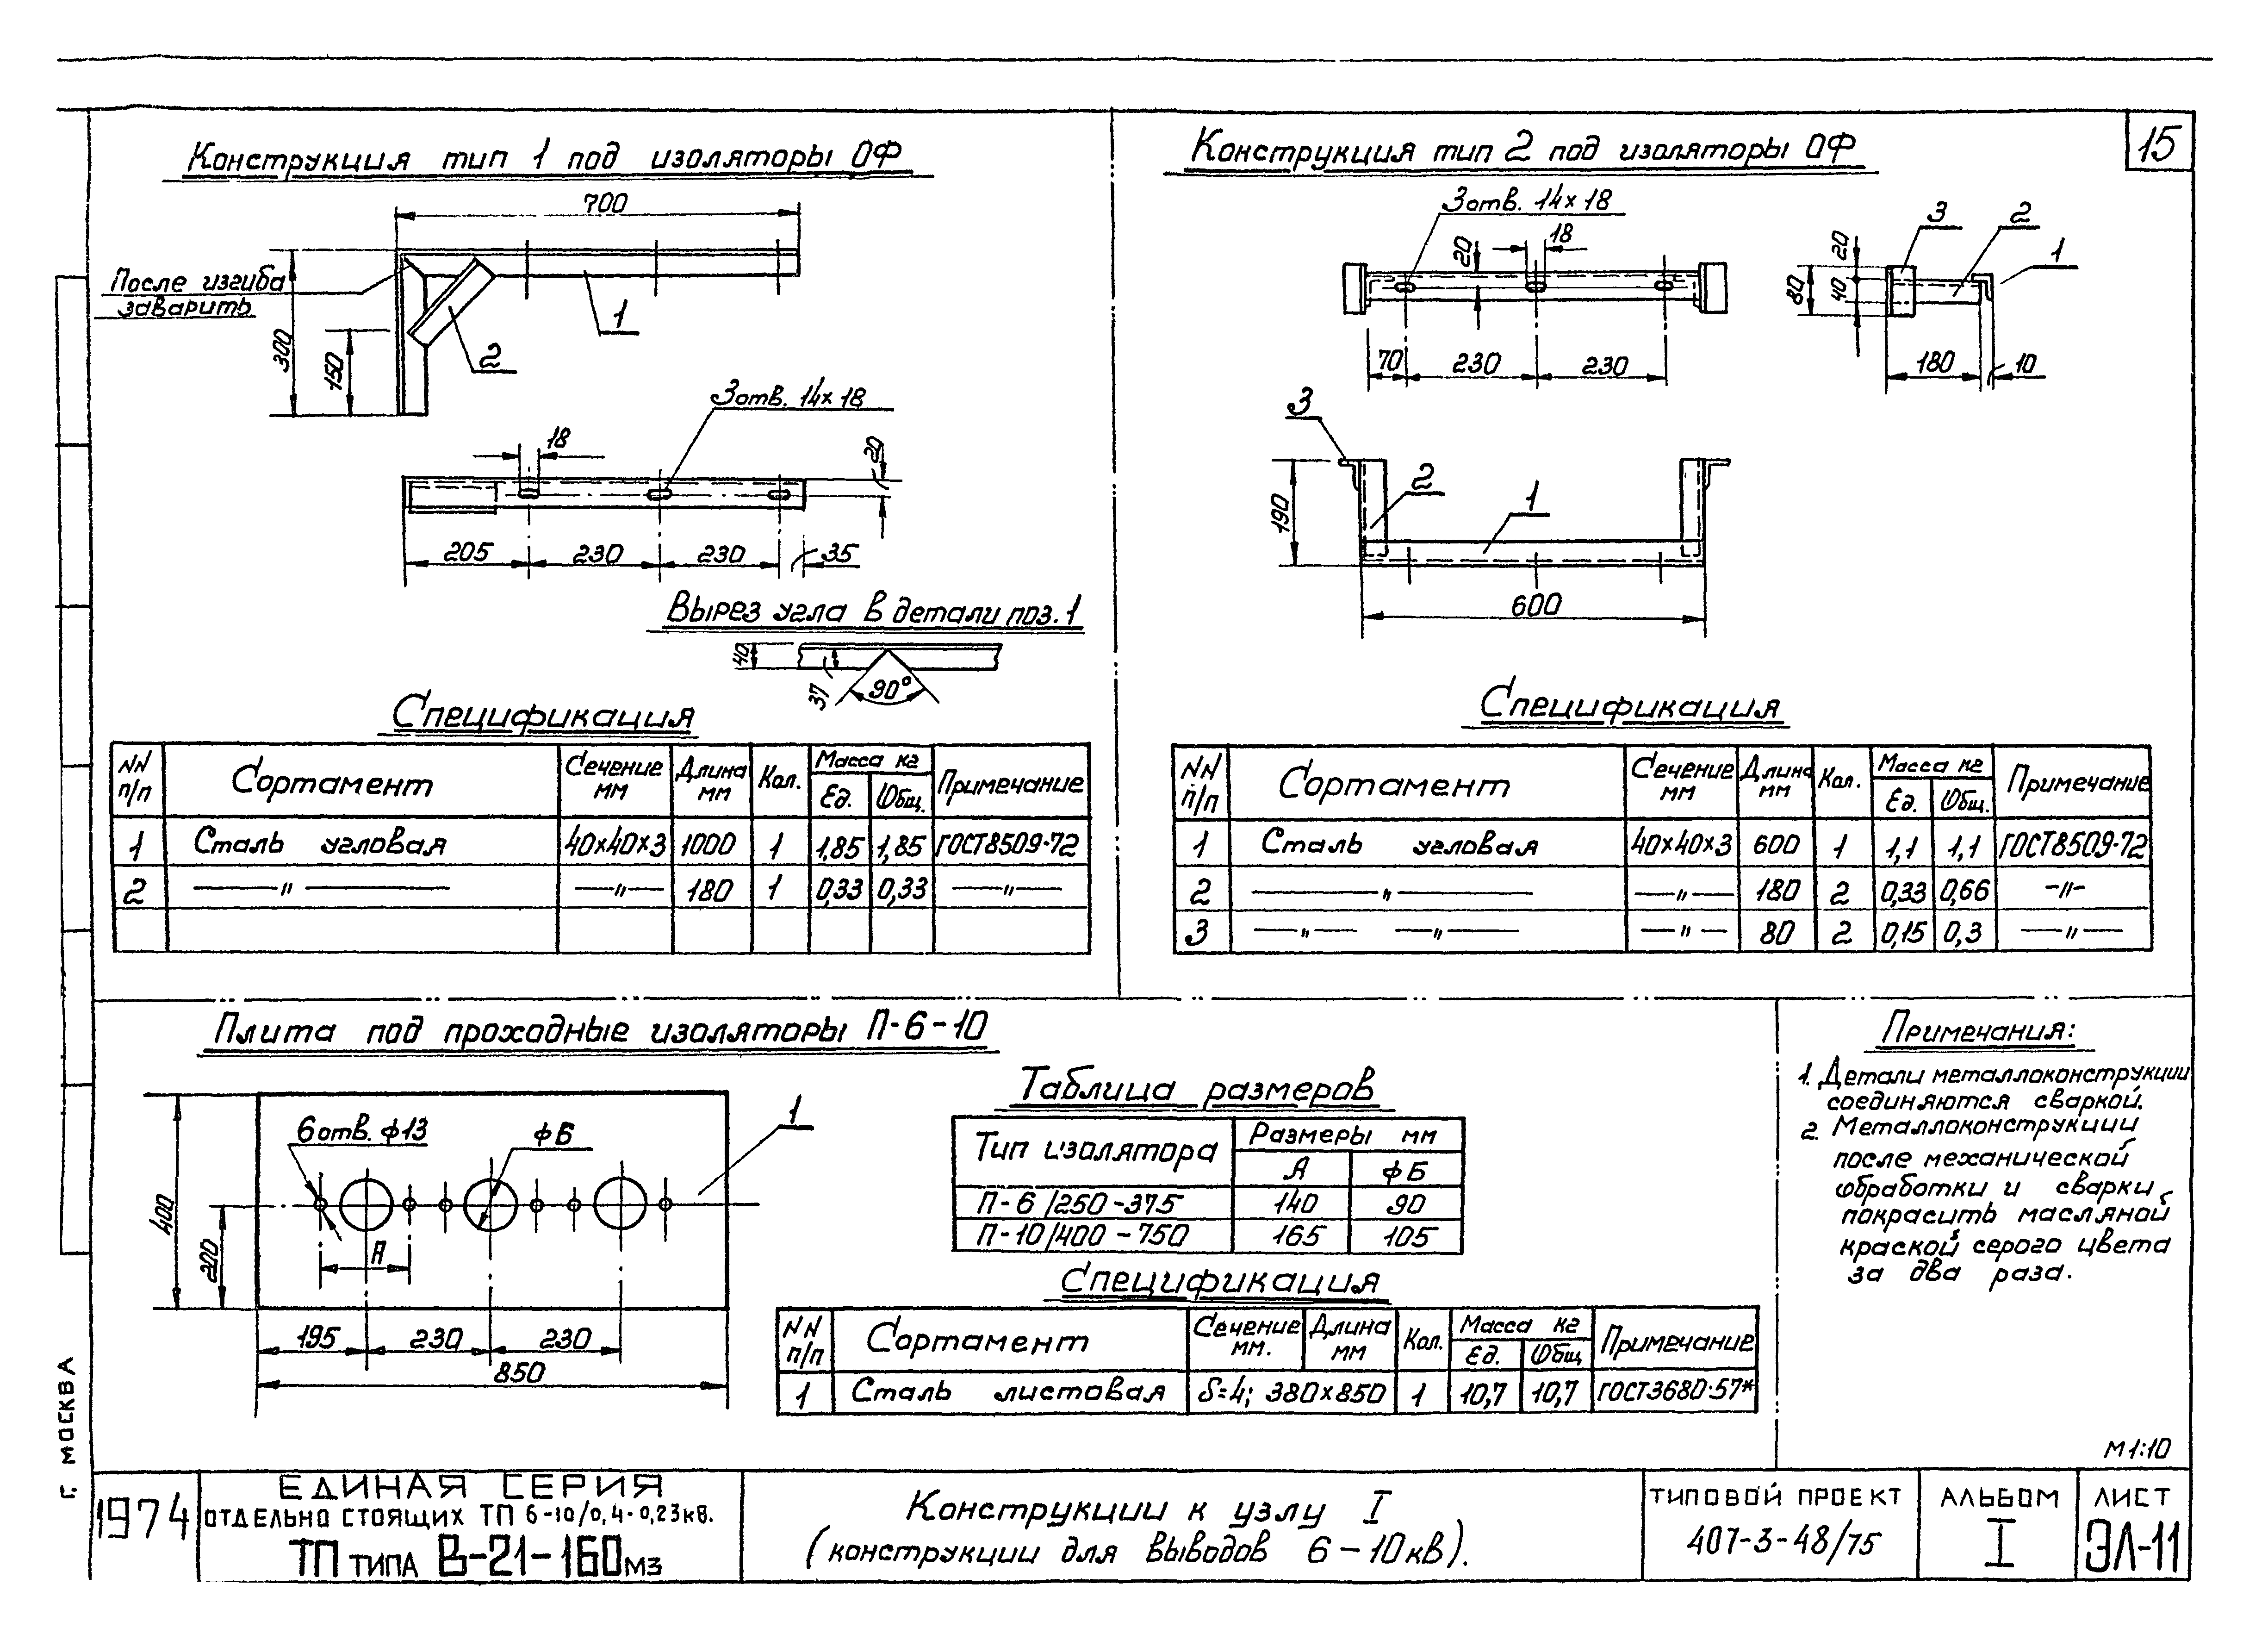 15
Конструкция тип 1 под изоляторы ОФ
700
После изгиба
заварить
300
150
1
2
3 отв. 14×18
18
20
205 230 230 35
Вырез угла в детали поз. 1
40
37
90°
Спецификация
NN п/п Сортамент Сечение мм Длина мм Кол. Масса кг Примечание
Ед. Общ.
1 Сталь угловая 40×40×3 1000 1 1,85 1,85 ГОСТ8509-72
2 —"— —"— 180 1 0,33 0,33 —"—
Конструкция тип 2 под изоляторы ОФ
3 отв. 14×18
18
20
70 230 230
3
2
1
20
80
40
180 10
3
2
1
190
600
Спецификация
NN п/п Сортамент Сечение мм Длина мм Кол. Масса кг Примечание
Ед. Общ.
1 Сталь угловая 40×40×3 600 1 1,1 1,1 ГОСТ8509-72
2 —"— —"— 180 2 0,33 0,66 —"—
3 —"— —"— —"— 80 2 0,15 0,3 —"—
Плита под проходные изоляторы П-6-10
6 отв. ф13
фБ
1
400
200
А
195 230 230
850
Таблица размеров
Тип изолятора Размеры мм
А фБ
П-6/250-375 140 90
П-10/400-750 165 105
Спецификация
NN п/п Сортамент Сечение мм. Длина мм Кол. Масса кг Примечание
Ед. Общ
1 Сталь листовая δ=4; 380×850 1 10,7 10,7 ГОСТ3680-57*
Примечания:
1. Детали металлоконструкции
соединяются сваркой.
2. Металлоконструкции
после механической
обработки и сварки
покрасить масляной
краской серого цвета
за два раза.
М1:10
г. МОСКВА
1974
ЕДИНАЯ СЕРИЯ
ОТДЕЛЬНО СТОЯЩИХ ТП 6-10/0,4-0,23кв.
ТП ТИПА В-21-160м3
Конструкции к узлу I
(конструкции для выводов 6-10кв).
ТИПОВОЙ ПРОЕКТ
407-3-48/75
АЛЬБОМ
I
ЛИСТ
ЭЛ-11